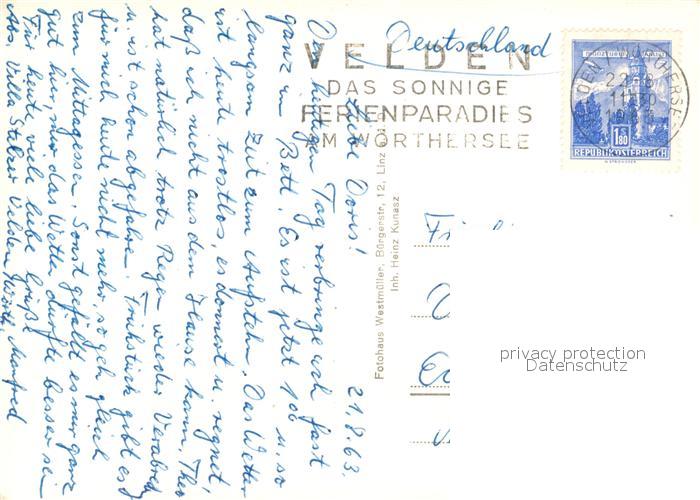 Deutschland
VELDEN
DAS SONNIGE
FERIENPARADIES
AM WÖRTHERSEE
1.80
REPUBLIK ÖSTERREICH
21.8.63.
Liebe Doris!
Den heutigen Tag verbringe ich fast
ganz im Bett! Es ist jetzt 10h u. so
langsam Zeit zum Aufstehn. Das Wetter
ist heute trostlos, es donnert u. regnet,
daß ich nicht aus dem Hause kann. Theo
hat natürlich trotz Regen wieder Verabred.
u. ist schon abgefahren. Frühstück gibt es
für mich heute nicht mehr, so geh gleich
zum Mittagessen. Sonst gefällt es mir ganz
gut hier, nur das Wetter dürfte besser sein
Für heute viele liebe Grüße
Manfred
Abs. Villa Velden
Fotohaus Westmüller, Bürgerstr. 12, Linz
Inh. Heinz Kunasz
privacy protection
Datenschutz